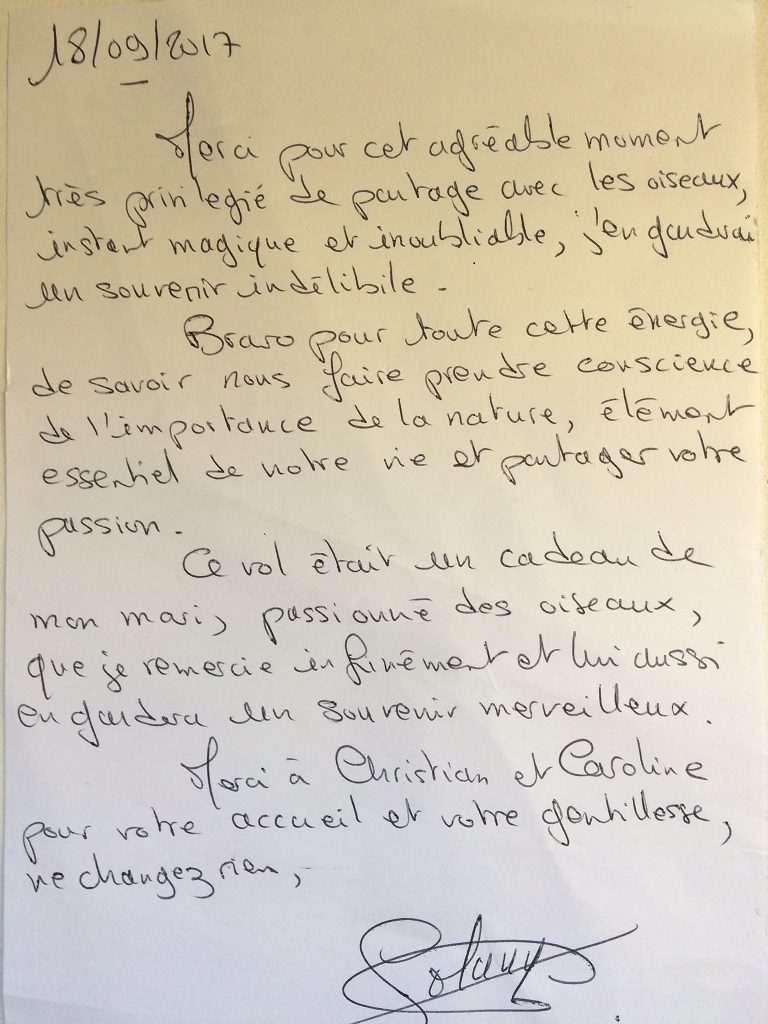 18/09/2017
Merci pour cet agréable moment
très privilegié de partage avec les oiseaux,
instant magique et inoubliable, j'en garderai
un souvenir indélibile.
Bravo pour toute cette énergie,
de savoir nous faire prendre conscience
de l'importance de la nature, élément
essentiel de notre vie et partager votre
passion.
Ce vol était un cadeau de
mon mari, passionné des oiseaux,
que je remercie infinément et lui aussi
en gardera un souvenir merveilleux.
Merci à Christian et Caroline
pour votre accueil et votre gentillesse,
ne changez rien,